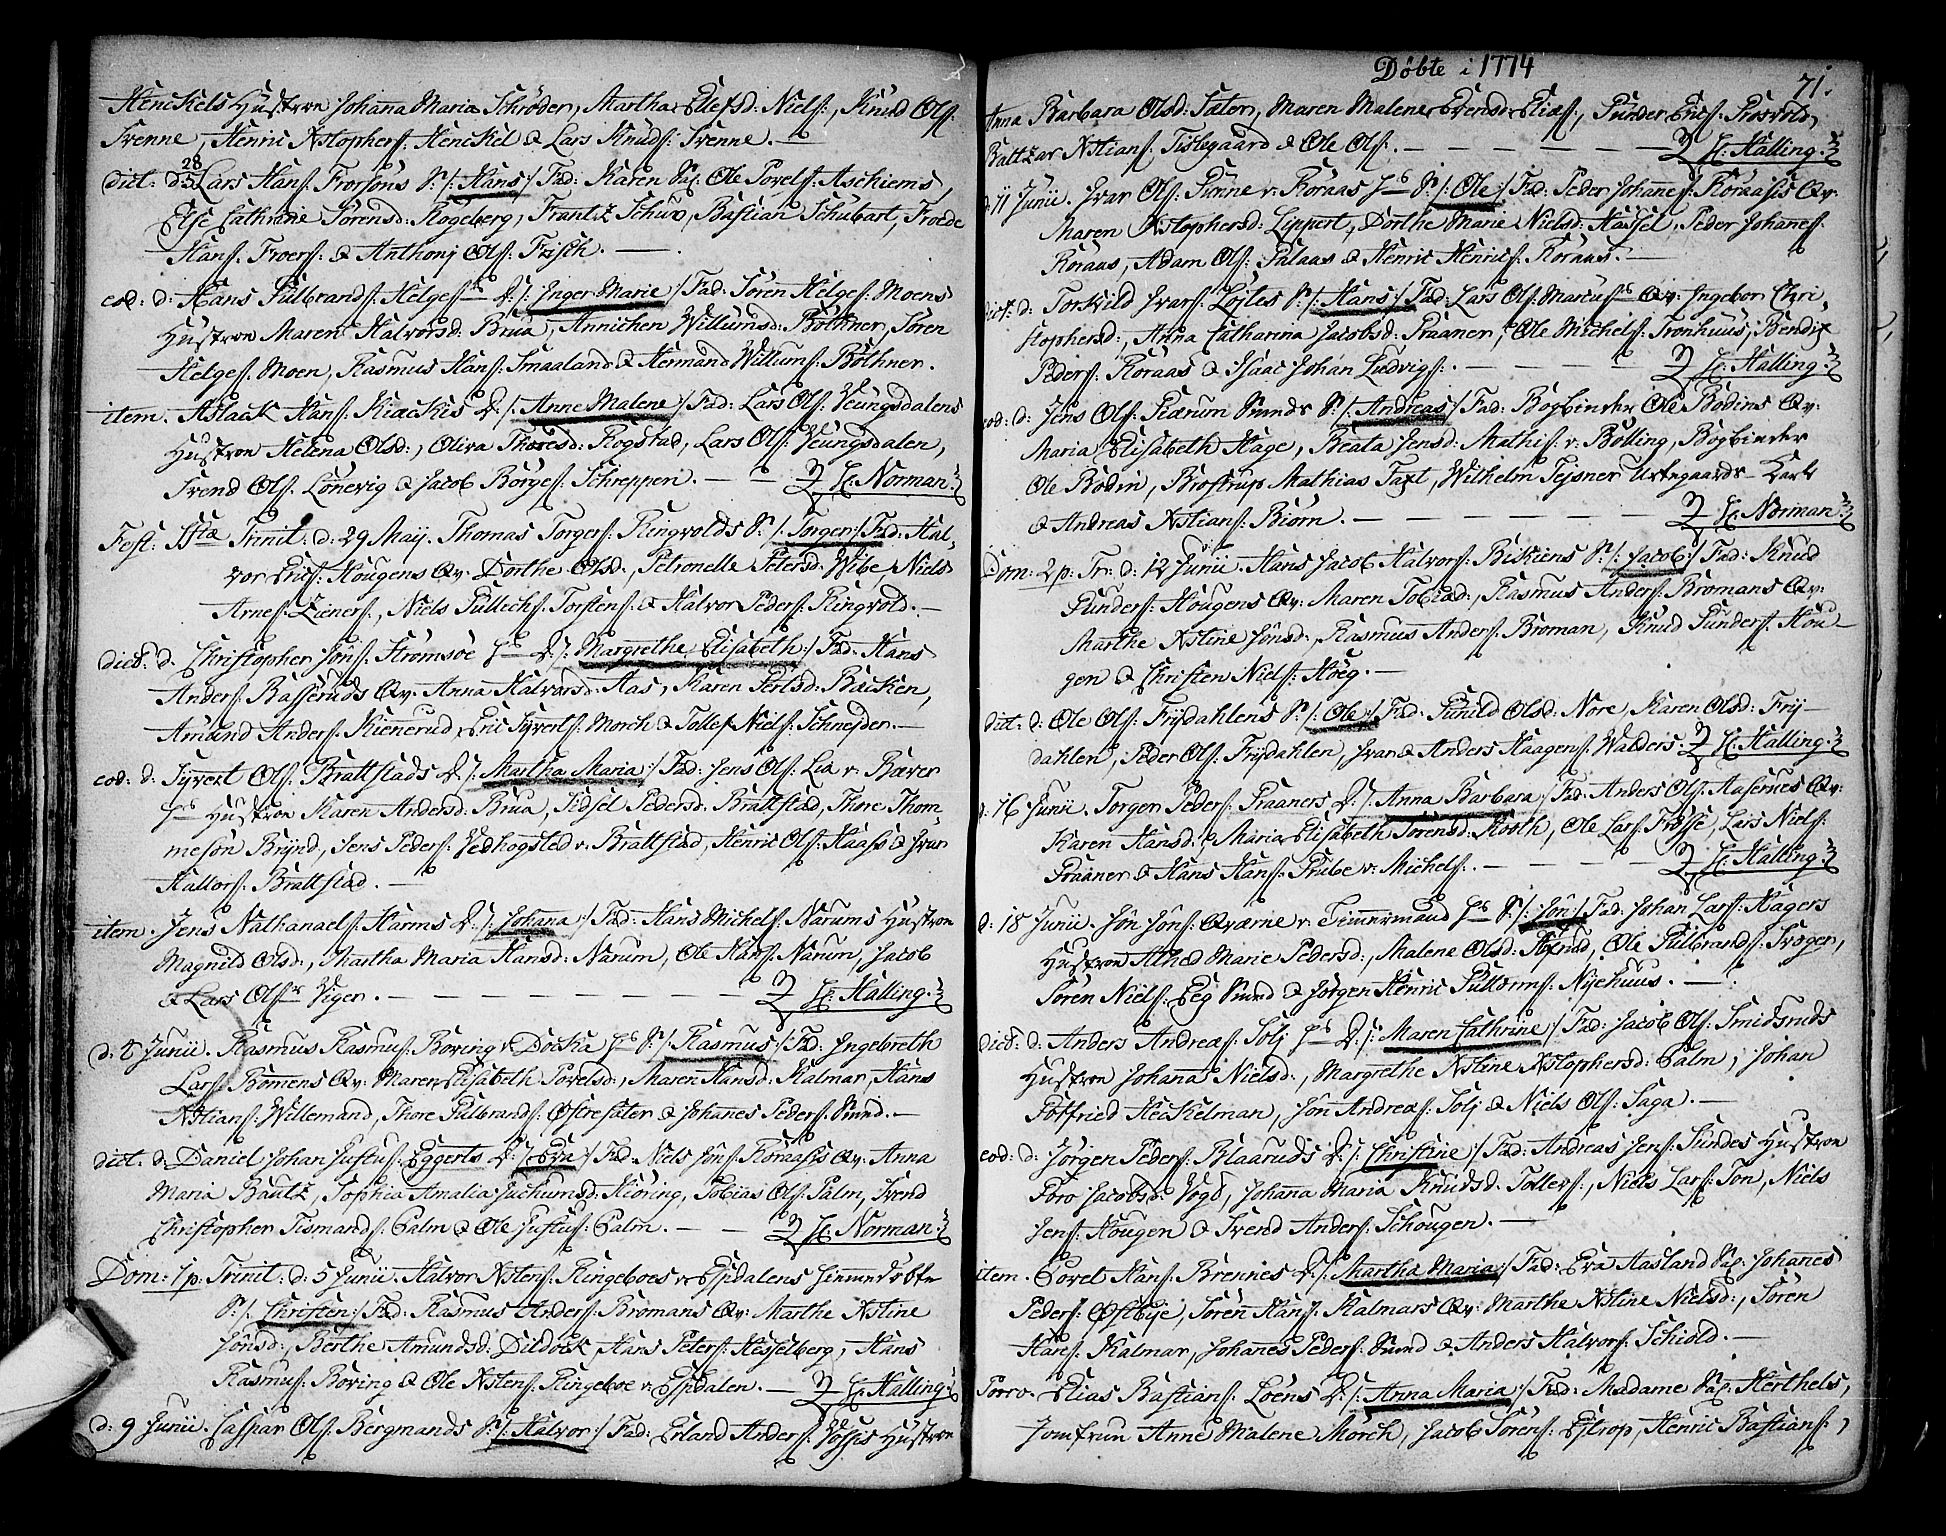 Henckels Hustroe Johana Maria Schröder, Martha Ellefsd: Niels:, Knud Ols:
Svenne, Henric Xstophers: Henckel & Lars Knuds: Svenne. —
dict: d: 28 Lars Hans: Forsöns S. /: Hans :/ Fad: Karen Sal. Ole Povels: Aschiems,
Else Cathrine Sörensd: Kogeberg, Frantz Schuv, Bastian Schubart, Frode
Hans: Froers: & Anthonj Ols: Frisch. —
eod: d: Hans Gulbrands: Helges: D. /: Inger Marie :/ Fad: Sören Helges: Moens
Hustroe Maren Halvorsd: Brua, Annichen Willumsd: Böthner, Sören
Helges: Moen, Rasmus Hans: Smaaland & Hermand Willums: Böthner.
item. Aslack Hans: Kiackis D. /: Anne Malene :/ Fad: Lars Ols: Veungsdalens
Hustroe Helena Olsd:, Oliva Thoresd: Rogstad, Lars Ols: Veungsdalen,
Svend Ols: Lönevig & Jacob Börges: Schreppen. — — H: Norman
Fest: SStæ Trinit: d: 29 Maij. Thomas Torgers: Ringvolds S. /: Torgen :/ Fad: Hal-
vor Erics: Hougens Qv: Dorthe Olsd:, Petronelle Petersd: Wibe, Niels
Arnes: Zieners:, Niels Gullichs: Torstens: & Halvor Peders: Ringvold. —
dict: d. Christopher Jöns: Strömsöe D. /: Margrethe Elisabeth :/ Fad: Hans
Anders: Basseruds Qv: Anna Halvorsd: Aas, Karen Pertsd: Backen,
Amund Anders: Kiennerud, Eric Syverts: Morch & Tollef Niels: Schnejder. —
eod: d: Syvert Ols: Brattstads D. /: Martha Maria :/ Fad: Jens Ols: Lia v. Bæver
Hustroe Karen Andersd: Brua, Sidsel Pedersd: Brattstad, Thore Thom-
mesön Brynd, Jens Peders: Vedhogsted v. Brattstad, Henric Ols: Haass & Ivar
Hallors: Brattstad. —
item. Jens Nathanaels: Harms D. /: Johana :/ Fad: Hans Michels: Narums Hustroe
Magnild Olsd:, Martha Maria Hansd: Narum, Ole Hans: Narum, Jacob
& Lars Ols: Viger. — — — H: Halling
d: 2 Junii. Rasmus Rasmus: Boring v. Docka S. /: Rasmus :/ Fad: Ingebreth
Lars: Bömens Qv: Maren Elisabeth Povelsd:, Maren Hansd: Kalmar, Hans
Xstians: Willemand, Thore Gulbrands: Østre Sater & Johanes Peders: Sund. —
dict: d: Daniel Johan Justus: Eggerts D. /: Eva :/ Fad: Niels Jöns: Koraass Qv: Anna
Maria Bautz, Sophia Amalia Juchumsd: Kiöring, Tobias Ols: Palm, Svend
Christopher Tismands: Palm & Ole Justus: Palm. — — H: Norman
Dom: 1 p: Trinit: d: 5 Junii. Halvor Xstens: Ringeboes v. Espdalens hiemmedöbte
S. /: Christen :/ Fad: Rasmus Anders: Bromans Qv: Marthe Xstine
Jönsd:, Berthe Amundsd: Dildock, Hans Peters: Hesselberg, Hans
Rasmus: Boring & Ole Xstens: Ringeboe v. Espdalen. — H: Halling
d: 9 Junii. Caspar Ols: Bergmands S. /: Halvor :/ Fad: Erland Anders: Vossis Hustroe
Döbte i 1774
71.
Anna Barbara Olsd: Sater, Maren Malene Evensd: Elias:, Gunder Erics: Prosvold,
Baltzar Xstians: Tislegaard & Ole Ols: — — — H: Halling
d: 11 Junii. Ivar Ols: Punne v. Koraas S. /: Ole :/ Fad: Peder Johanes: Koraasis Qv:
Maren Xstophersd: Lippert, Dorthe Marie Nielsd: Hassel, Peder Johanes:
Koraas, Adam Ols: Palaas & Henric Henrics: Koraas. —
dict: d: Torkild Ivars: Löjtes S. /: Hans :/ Fad: Lars Ols: Marcus: Qv: Ingebor Chri-
stophersd:, Anna Catharina Jacobsd: Praaner, Ole Michels: Tronhuus, Bendix
Peders: Koraas & Isaac Johan Ludvigs: — — — H: Halling
eod: d: Jens Ols: Pærum Sunds S. /: Andreas :/ Fad: Bogbinder Ole Bodins Qv:
Maria Elisabeth Hage, Beata Jensd: Mathis: v. Bölling, Bogbinder
Ole Bodin, Brostrup Mathias Taxt, Wilhelm Tejsner Urtegaards-Karl
& Andreas Xstians: Biörn. — — — H: Norman
Dom: 2 p: Tr: d: 12 Junii. Hans Jacob Halvors: Biskiens S. /: Jacob :/ Fad: Knud
Gunders: Hougens Qv: Maren Tobiad:, Rasmus Anders: Bromans Qv:
Marthe Xstine Jönsd:, Rasmus Anders: Broman, Knud Gunders: Hou-
gen & Christen Niels: Höeg. —
dict: d: Ole Ols: Frijdahlens S. /: Ole :/ Fad: Gunild Olsd: Nore, Karen Olsd: Frij-
dahlen, Peder Ols: Frijdahlen, Ivar & Anders Haagens: Walders. H: Halling
d: 16 Junii. Torgen Peders: Praaners D. /: Anna Barbara :/ Fad: Anders Ols: Aasernes Qv:
Karen Hansd: & Maria Elisabeth Sörensd: Kooth, Ole Lars: Frösse, Lars Niels:
Praaner & Hans Hans: Grube v: Michels: — — — H: Halling
d: 18 Junii. Jön Jöns: Qværne v. Timmermand S. /: Jön :/ Fad: Johan Lars: Hagers
Hustroe Alhed Marie Pedersd:, Malene Olsd: Hofstad, Ole Gulbrands: Svager,
Sören Niels: Eeg Sund & Jörgen Henric Gullesens: Nijehuus. —
dict: d: Anders Andreas: Solj D. /: Maren Cathrine :/ Fad: Jacob Ols: Smidsruds
Hustroe Johana Nielsd:, Margrethe Xstine Xstophersd: Palm, Johan
Gotfried Heckelman, Jön Andreas: Solj & Niels Ols: Saga. —
eod: d: Jörgen Peders: Blaaruds D. /: Christine :/ Fad: Andreas Jens: Sundes Hustroe
Goro Jacobsd: Vogd, Johanna Maria Knudsd: Tollers:, Niels Lars: Ton, Niels
Jens: Hougen & Svend Anders: Schougen. —
item. Povel Hans: Brennes D. /: Martha Maria :/ Fad: Eva Aasland Sal. Johanes
Peders: Østbye, Sören Hans: Kalmars Qv: Marthe Xstine Nielsd:, Sören
Hans: Kalmar, Johanes Peders: Sund & Anders Halvors: Schiold. —
Porro. Elias Bastians: Loens D. /: Anna Maria :/ Fad: Madame Sal: Herthels,
Jomfrue Anne Malene Morch, Jacob Sörens: Estrop, Henric Bastians:,